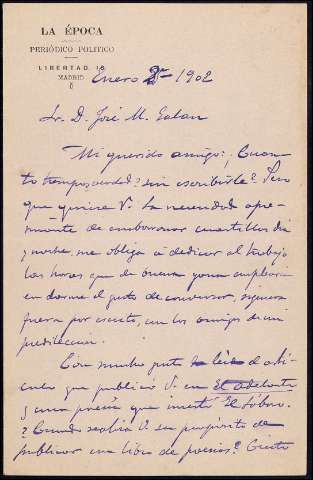 LA ÉPOCA
PERIÓDICO POLITICO
LIBERTAD, 18
MADRID
Enero 2 - 1902
Sr. D. José M. Galan
Mi querido amigo: ¿Cuan
to tiempo sin escribirle? Pero
que quiere V. La necesidad apre-
miante de emborronar cuartillas dia
y noche, me obliga á dedicar al trabajo
las horas que de buena gana emplearia
en darme el gusto de conversar, siquiera
fuera por escrito, con los amigos de mi
predileccion.
Con mucho gusto leí el arti
culo que publicó V. en El Adelanto
y una poesía que insertó El Lábaro.
¿Cuando realiza V. su propósito de
publicar un libro de poesias? Cierto